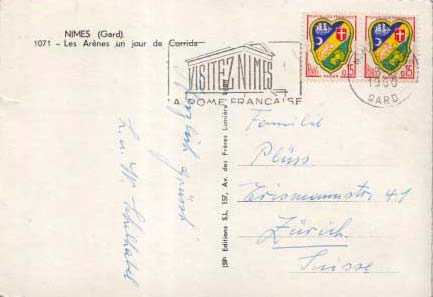 NIMES (Gard).
1071 - Les Arènes un jour de Corrida
VISITEZ NIMES
LA ROME FRANÇAISE
1960
GARD
0,15
0,15
Herzlich grüsst
(SP) Editions S.L. 157, Av. des Frères Lumière
Familie
Plüss
Erismannstr. 41
Zürich
Suisse